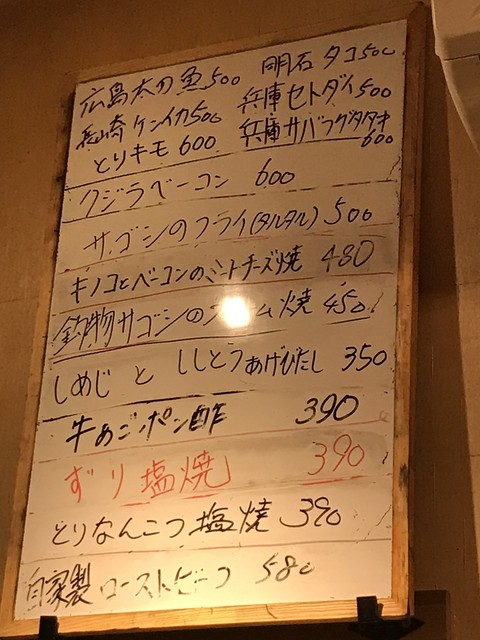 広島太刀魚500 明石タコ500
長崎ケンイカ500 兵庫セトダイ500
とりキモ 600 兵庫サバラグタタキ 600
クジラベーコン 600
サゴシのフライ(タルタル) 500
キノコとベーコンのミートチーズ焼 480
釣物サゴシの ム焼 450
しめじ と ししとうあげびたし 350
牛あごポン酢 390
ずり塩焼 390
とりなんこつ塩焼 390
自家製ローストビーフ 580